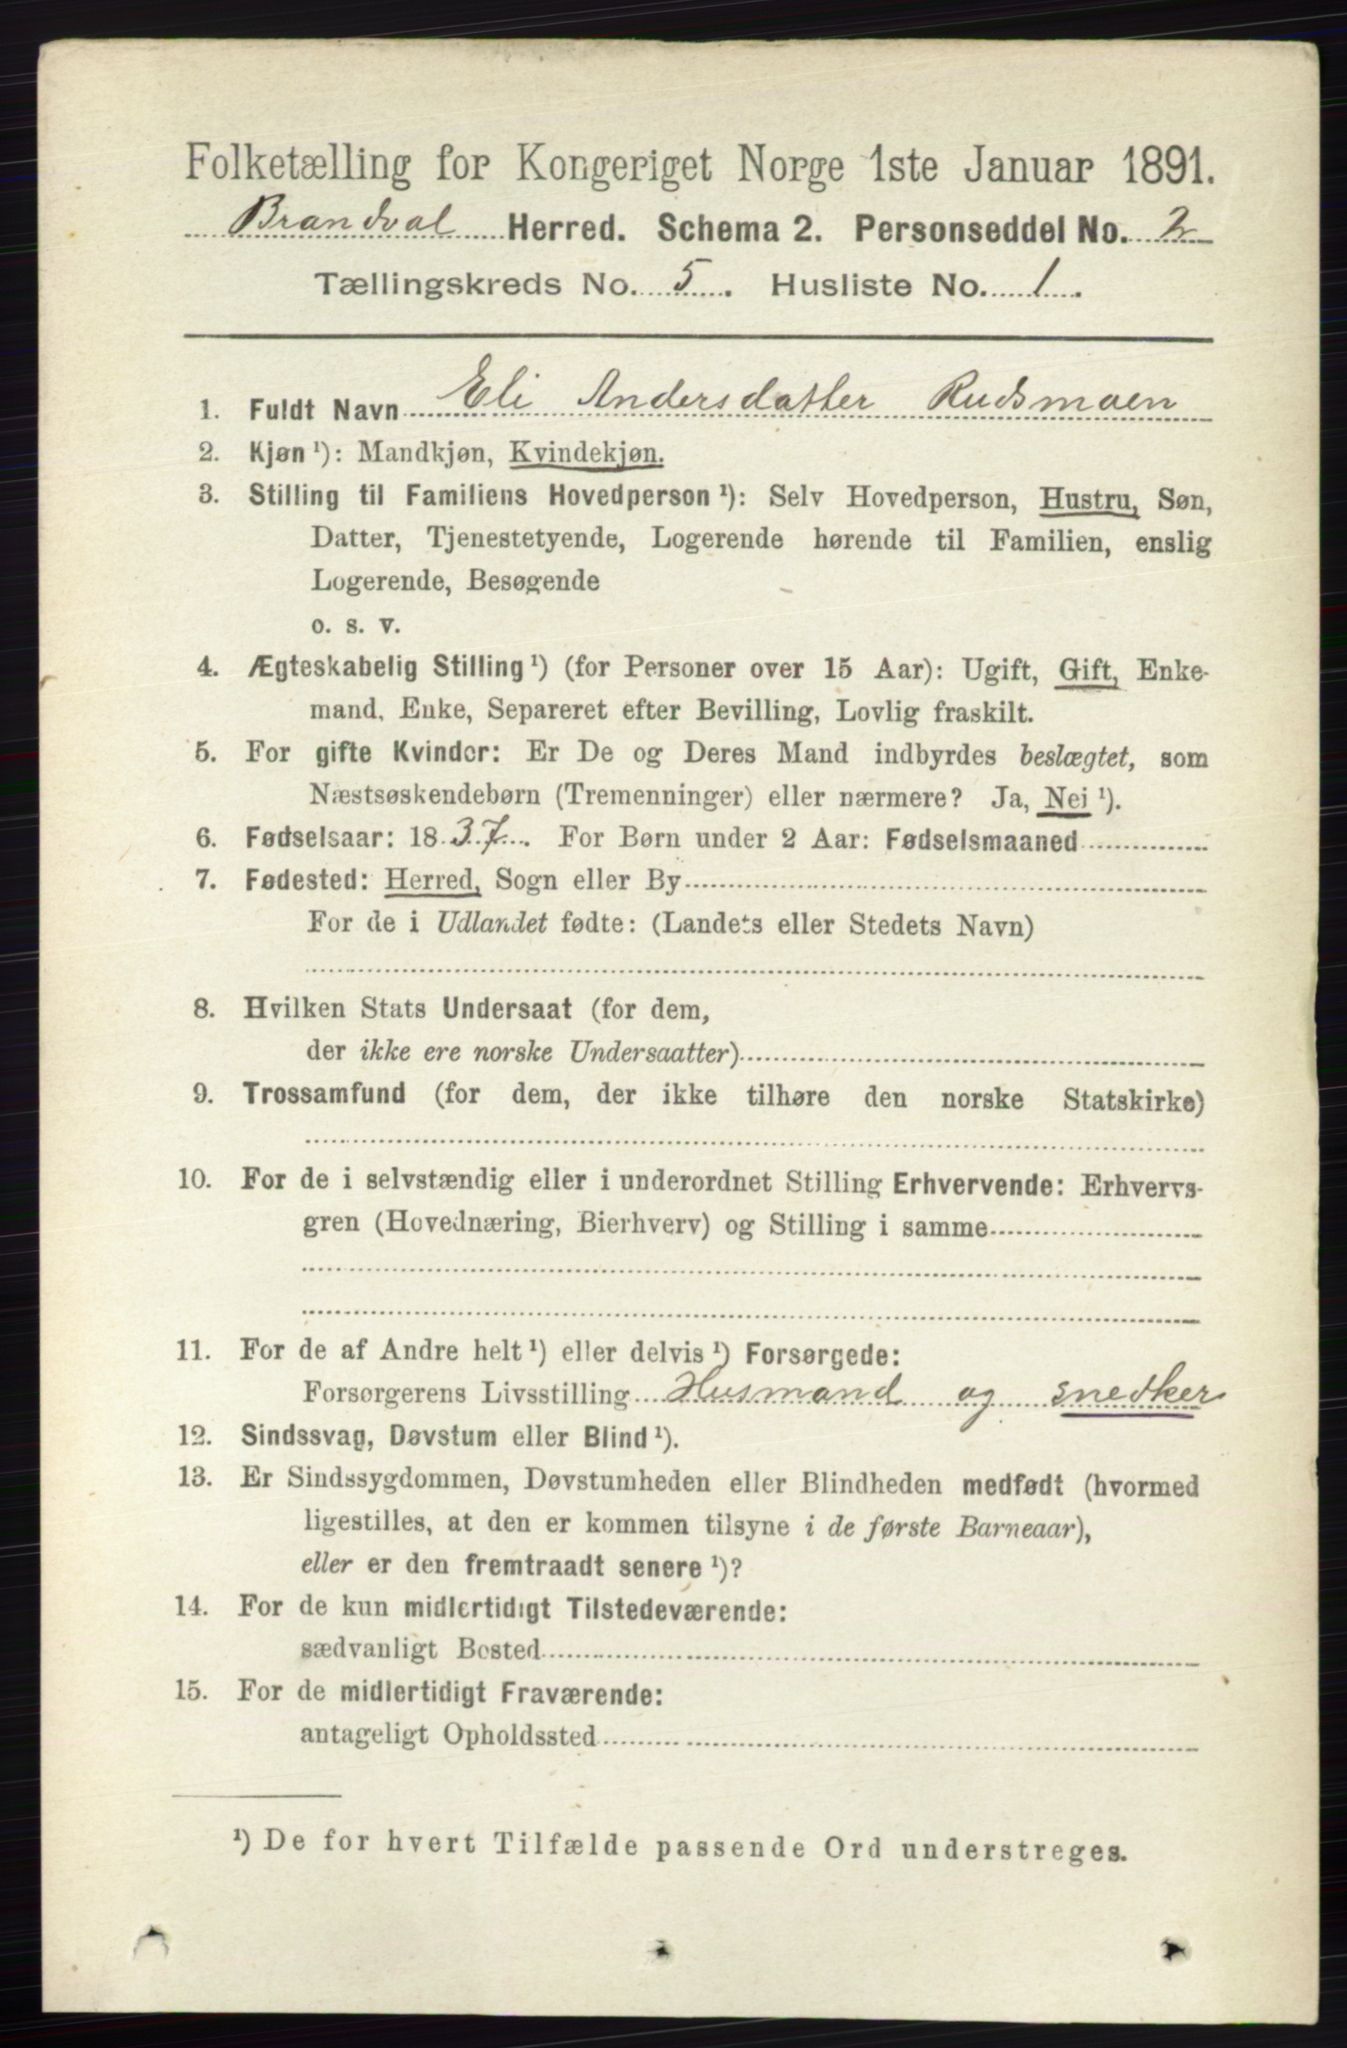 Folketælling for Kongeriget Norge 1ste Januar 1891.
Brandval Herred. Schema 2. Personseddel No. 2
Tællingskreds No. 5. Husliste No. 1.
1. Fuldt Navn Eli Andersdatter Rudsmoen
2. Kjøn ¹): Mandkjøn, Kvindekjøn.
3. Stilling til Familiens Hovedperson ¹): Selv Hovedperson, Hustru, Søn,
Datter, Tjenestetyende, Logerende hørende til Familien, enslig
Logerende, Besøgende
o. s. v.
4. Ægteskabelig Stilling ¹) (for Personer over 15 Aar): Ugift, Gift, Enke-
mand, Enke, Separeret efter Bevilling, Lovlig fraskilt.
5. For gifte Kvinder: Er De og Deres Mand indbyrdes beslægtet, som
Næstsøskendebørn (Tremenninger) eller nærmere? Ja, Nei ¹).
6. Fødselsaar: 1837. For Børn under 2 Aar: Fødselsmaaned
7. Fødested: Herred, Sogn eller By
For de i Udlandet fødte: (Landets eller Stedets Navn)
8. Hvilken Stats Undersaat (for dem,
der ikke ere norske Undersaatter)
9. Trossamfund (for dem, der ikke tilhøre den norske Statskirke)
10. For de i selvstændig eller i underordnet Stilling Erhvervende: Erhvervs-
gren (Hovednæring, Bierhverv) og Stilling i samme
11. For de af Andre helt ¹) eller delvis ¹) Forsørgede:
Forsørgerens Livsstilling Husmand og snedker
12. Sindssvag, Døvstum eller Blind ¹).
13. Er Sindssygdommen, Døvstumheden eller Blindheden medfødt (hvormed
ligestilles, at den er kommen tilsyne i de første Barneaar),
eller er den fremtraadt senere ¹)?
14. For de kun midlertidigt Tilstedeværende:
sædvanligt Bosted
15. For de midlertidigt Fraværende:
antageligt Opholdssted
¹) De for hvert Tilfælde passende Ord understreges.